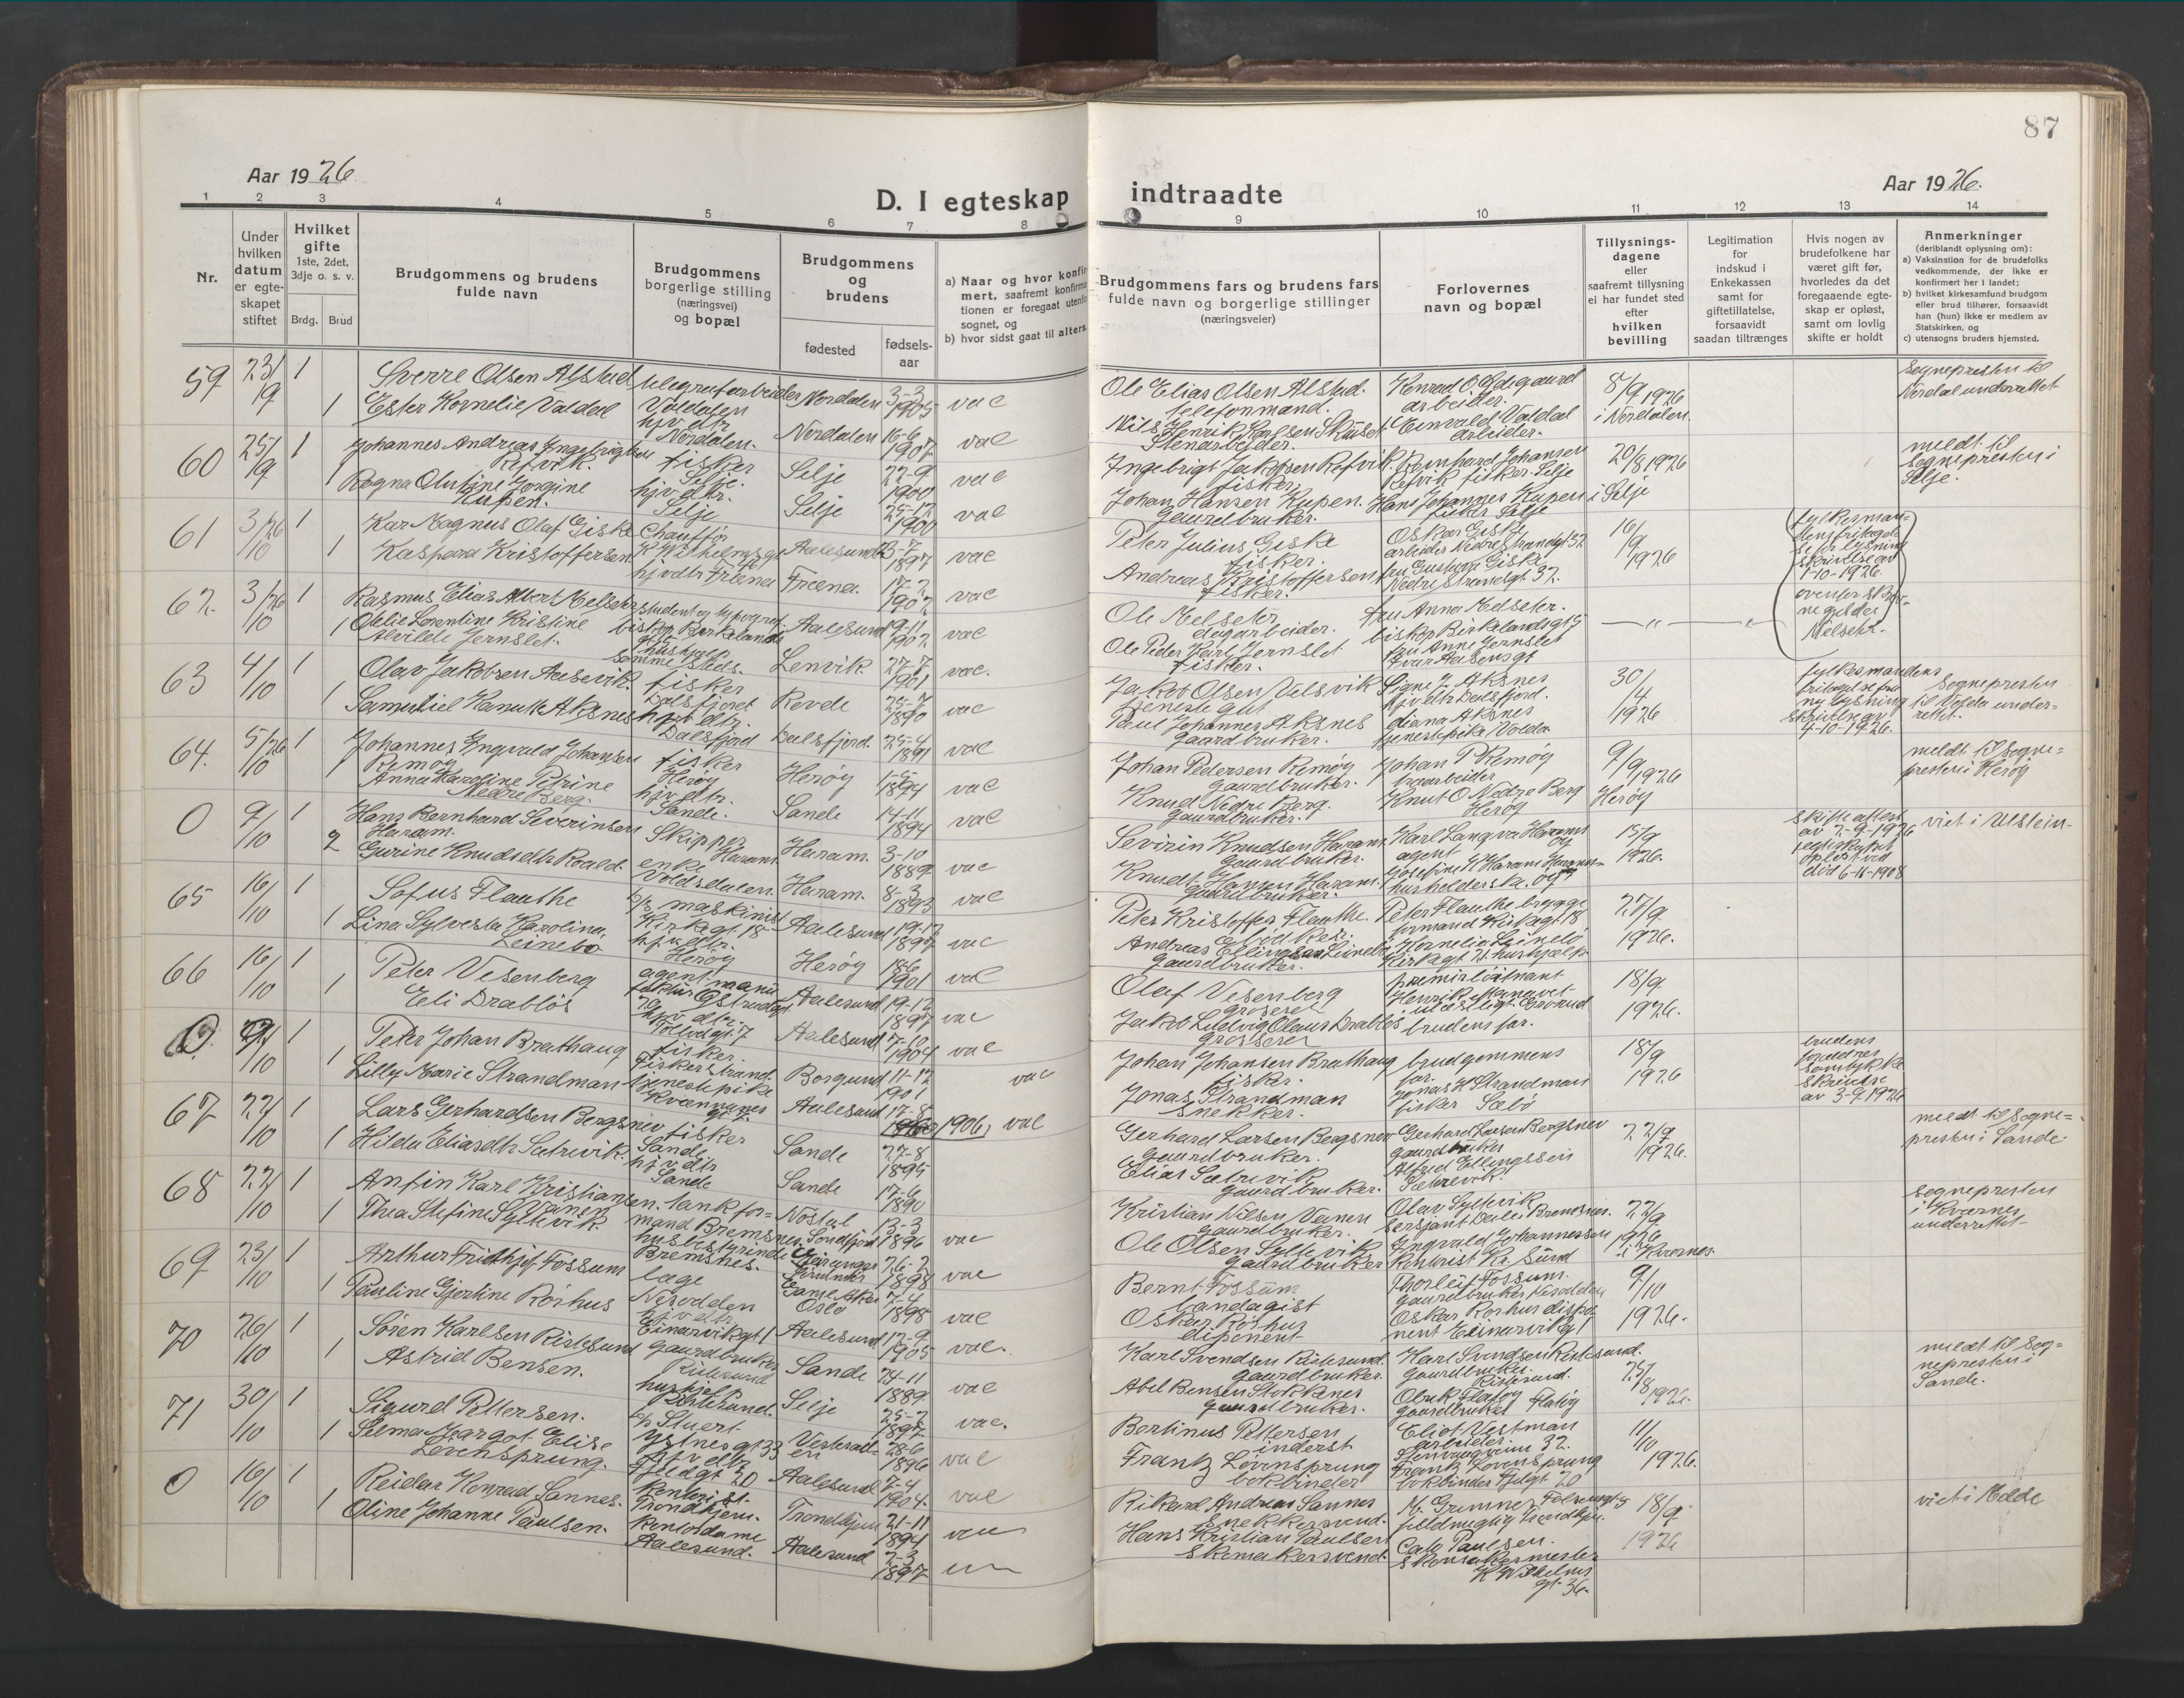 87
Aar 1926
D. I egteskap indtraadte
Aar 1926.
1 2 3 4 5 6 7 8 9 10 11 12 13 14
Nr.
Under hvilken datum er egte-skapet stiftet
Hvilket gifte 1ste, 2det, 3dje o. s. v.
Brdg. Brud
Brudgommens og brudens fulde navn
Brudgommens borgerlige stilling (næringsvei) og bopæl
Brudgommens og brudens
fødested
fødsels-aar
a) Naar og hvor konfir
mert, saafremt konfirma
tionen er foregaat utenfo
sognet, og
b) hvor sidst gaat til alters.
Brudgommens fars og brudens fars fulde navn og borgerlige stillinger (næringsveier)
Forlovernes navn og bopæl
Tillysnings-dagene eller saafremt tillysning ei har fundet sted efter hvilken bevilling
Legitimation for indskud i Enkekassen samt for giftetillatelse, forsaavidt saadan tiltrænges
Hvis nogen av brudefolkene har været gift før, hvorledes da det foregaaende egte-skap er opløst, samt om lovlig skifte er holdt
Anmerkninger
(deriblandt oplysning om):
a) Vaksination for de brudefolks vedkommende, der ikke er konfirmert her i landet;
b) hvilket kirkesamfund brudgom eller brud tilhører, forsaavidt han (hun) ikke er medlem av Statskirken, og
c) utensogns bruders hjemsted.
59 23/9 1 Sverre Olsen Alstad telegrafarbeider Nordalen 3-3 1905 vac
Ole Elias Olsen Alstad. telefonmand. Konrad Ødegaard arbeider. 8/9 1926
Sognepresten til Nordal underrettet
1 Ester Kornelie Valdal hjv dtr Nordalen. Nordalen 16-6 1907 vac
Nils Henrik Karlsen Stenarbeider. Einvald Valdal arbeider. i Nordalen
60 25/9 1 Johannes Andreas Ingebrigtsen Refvik. fisker Selje. Selje 22-9 1900 vac
Ingebrigt Jakobsen Refvik. fisker. Reinhard Johansen Refvik fisker. Selje 20/8 1926
meldt til sognepresten i Selje.
1 Ragna Olufine Jorgine Kupen. hjv dtr. Selje Selje 25-12 1900 vac
Johan Hansen Kupen. Gaardbruker. Hans Johannes Kupen fisker Selje i Selje
61 3/10 26 1 Kar Magnus Olaf Giske Chauffør Aalesund 1897 vac
Peter Julius Giske fisker. Oskar Giske arbeider Nedre Strandgt 37 16/9 1926
fylkesman-
skrivelse av 1-10-1926.
1 Kaspara Kristoffersen hjvdtr Fræna Fræna. 17-2 1902 vac
Andreas Kristoffersen fisker. fru Gustava Giske Nedre Strandgt. 37.
62. 3/10 26 1 Rasmus Elias Albert Melseter student og typograf Aalesund 19-11 1902 vac
Ole Melseter dagarbeider. fru Anna Melseter. biskop Birkelandsgt 5
gjelder Melseter.
1 Odelie Lorentine Kristine Alvilde Jernslet. hushjælp samme steds. Lenvik. 27-7 1901 vac.
Ole Peder Karl Jernslet fisker. fru Anne Jernslet Ivar Aasensgt
63 4/10 1 Olav Jakobsen Aasevik. fisker Dalsfjord Rovde 25-7 1890 vac
Jakob Olsen Velsvik tjenestegut Signe J. Aksnes hjv dtr Dalsfjord. 30/4 1926
fylkesmandens fritagelse for ny lysning skrivelse av 4-10-1926.
Sognepresten til Volda under-rettet.
1 Samuliel Hanuk Aksnes hjv dtr. Dalsfjord Dalsfjord. 25-4 1891 vac
Paul Johannes Aksnes gaardbruker. diana Aksnes tjenestepike Volda
64. 5/10 26 1 Johannes Yngvald Johansen Remøy fisker Herøy Herøy 1-5 1894 vac
Johan Pedersen Remøy gaardbruker. Johan P Remøy 9/9 1926
meldt til sogne-presten i Herøy
1 Anna Karoline Petrine Nedre Berg. hjv dtr. Sande. Sande 14-11 1894 vac
Knud Nedre Berg. gaardbruker. Knut O Nedre Berg Herøy Herøy
0 9/10 1 Hans Bernhard Severinsen Haram. Skipper Haram. Haram. 3-10 1889 vac
Severin Knudsen Haram. gaardbruker. Karl Langva agent 15/9 1926.
skifteattest av 7-9-1926 egteskapet opløst ved død 6-11-1918
viet i Ulstein-
2 Gurine Knudsdtr Roald. enke Voldsdalen. Haram. 8-3 1893 vac
Knudt Hansen Haram. gaardbruker.
65 16/10 1 Sofus Flauthe maskinist Kirkegt. 18 Aalesund 19-12 1897 vac
Peter Kristoffer Flauthe. Peter Flauthe brygge formand Kirkegt 18 27/9 1926.
1 Lina Sylvesta Karolina Leinebø hjv dtr. Herøy Herøy 18-6 1901 vac
Andreas Ellingsen Leinebø gaardbruker. Kornelia Leinebø Kirkegt 21 hushjælp
66 16/10 1 Peter Vesenberg agent Aalesund 19-12 1897 vac
Olaf Vesenberg grosserer premierløitnant 18/9 1926.
1 Eli Drabløs hjv dtr. Tolbodgt 7 Aalesund 7-10 1904 vac
Jakob Ludvig Olaus Drabløs grosserer brudens far.
0. 22/10 Peter Johan Brathaug fisker. Fiskerstrand. Borgund 11-12 1901 vac
Johan Johansen Brathaug fisker. brudgommens far. 18/9 1926
brudens forældres samtykke skrivelse av 3-9-1926
1 Lilly Marie Strandman tjenestepike Aalesund 17-8 1906 vac
Jonas Strandman snekker. Jonas H Strandman fisker Sæbø
67 22/10 1 Lars Gerhardsen Bergsnev fisker Sande Sande 27-8 1895
Gerhard Larsen Bergsnev gaardbruker. Gerhard Larsen Bergsnev gaardbruker 22/9 1926.
meldt til sogne-presten i Sande
1 Hilda Eliasdtr Sætrevik. hjv dtr Sande Sande 17-6 1890
Elias Sætrevik gaardbruker. Alfred Ellingsen Sætrevik.
68 22/10 1 Anfin Karl Kristiansen Vanen tankfor-mand Bremsnes. 13-3 1896 vac
Kristian Nilsen Vanen gaardbruker. Olav Syltevik sersjant Dale Bremsnes. 22/9 1926 i Kvernes
Sognepresten i Kvernes underrettet-
1 Thea Stefine Syltevik. husbestyrinde Bremsnes. 26-2 1898 vac
Ole Olsen Syltevik gaardbruker Ingvald Johannessen kontorist Kr. Sund
69 23/10 1 Arthur Fridthjof Fossum læge Nesodden Gamle Aker Oslo 7-4 1898 vac
Bernt Fossum bandagist Thorleif Fossum. gaardbruker Nesodden 9/10 1926.
1 Pauline Gjertine Rørhus hjv dtr Einarvikgt 1 Aalesund 12-9 1905 vac.
Oskar Rørhus disponent Oskar Rørhus dispo nent Einarvikgt 1
70 26/10 1 Søren Karlsen Ristesund gaardbruker Ristesund Sande 24-11 1889 vac
Karl Svendsen Ristesund. gaardbruker. Karl Svendsen Ristesund. gaardbruker. Ristesund. 25/8 1926.
meldt til sog-nepresten i Sande.
1 Astrid Bensen. hushjelp Ristesund. Selje 25-2 1897 vac.
Abel Bensen Stokkenes gaardbruker. Flatøy gaardbruker Flatøy
71 30/10 1 Sigurd Pettersen. Stuert 28-6 1896 vac
Bertinus Pettersen inderst Eliot Vestman arbeider 32. 11/10 1926.
1 Selma Margot Elise Levensprung. hjv dtr Fjeldgt 20 Aalesund 7-4 1904. vac
Frantz Levensprung bokbinder Frantz Levensprung bokbinder Fjelgt 20
0 16/10 1 Reidar Konrad Sannes. kontorist. Trondhjem. Trondhjem 21-11 1894 vac
Rikard Andreas Sannes Snekkersvend. 18/9 1926
viet i Molde
1 Oline Johanne Paulsen. kontordame Aalesund. Aalesund 2-3 1897
Hans Kristian Paulsen Skomakersvend. Paulsen. Skomakermester K Wilhelms gt. 36.